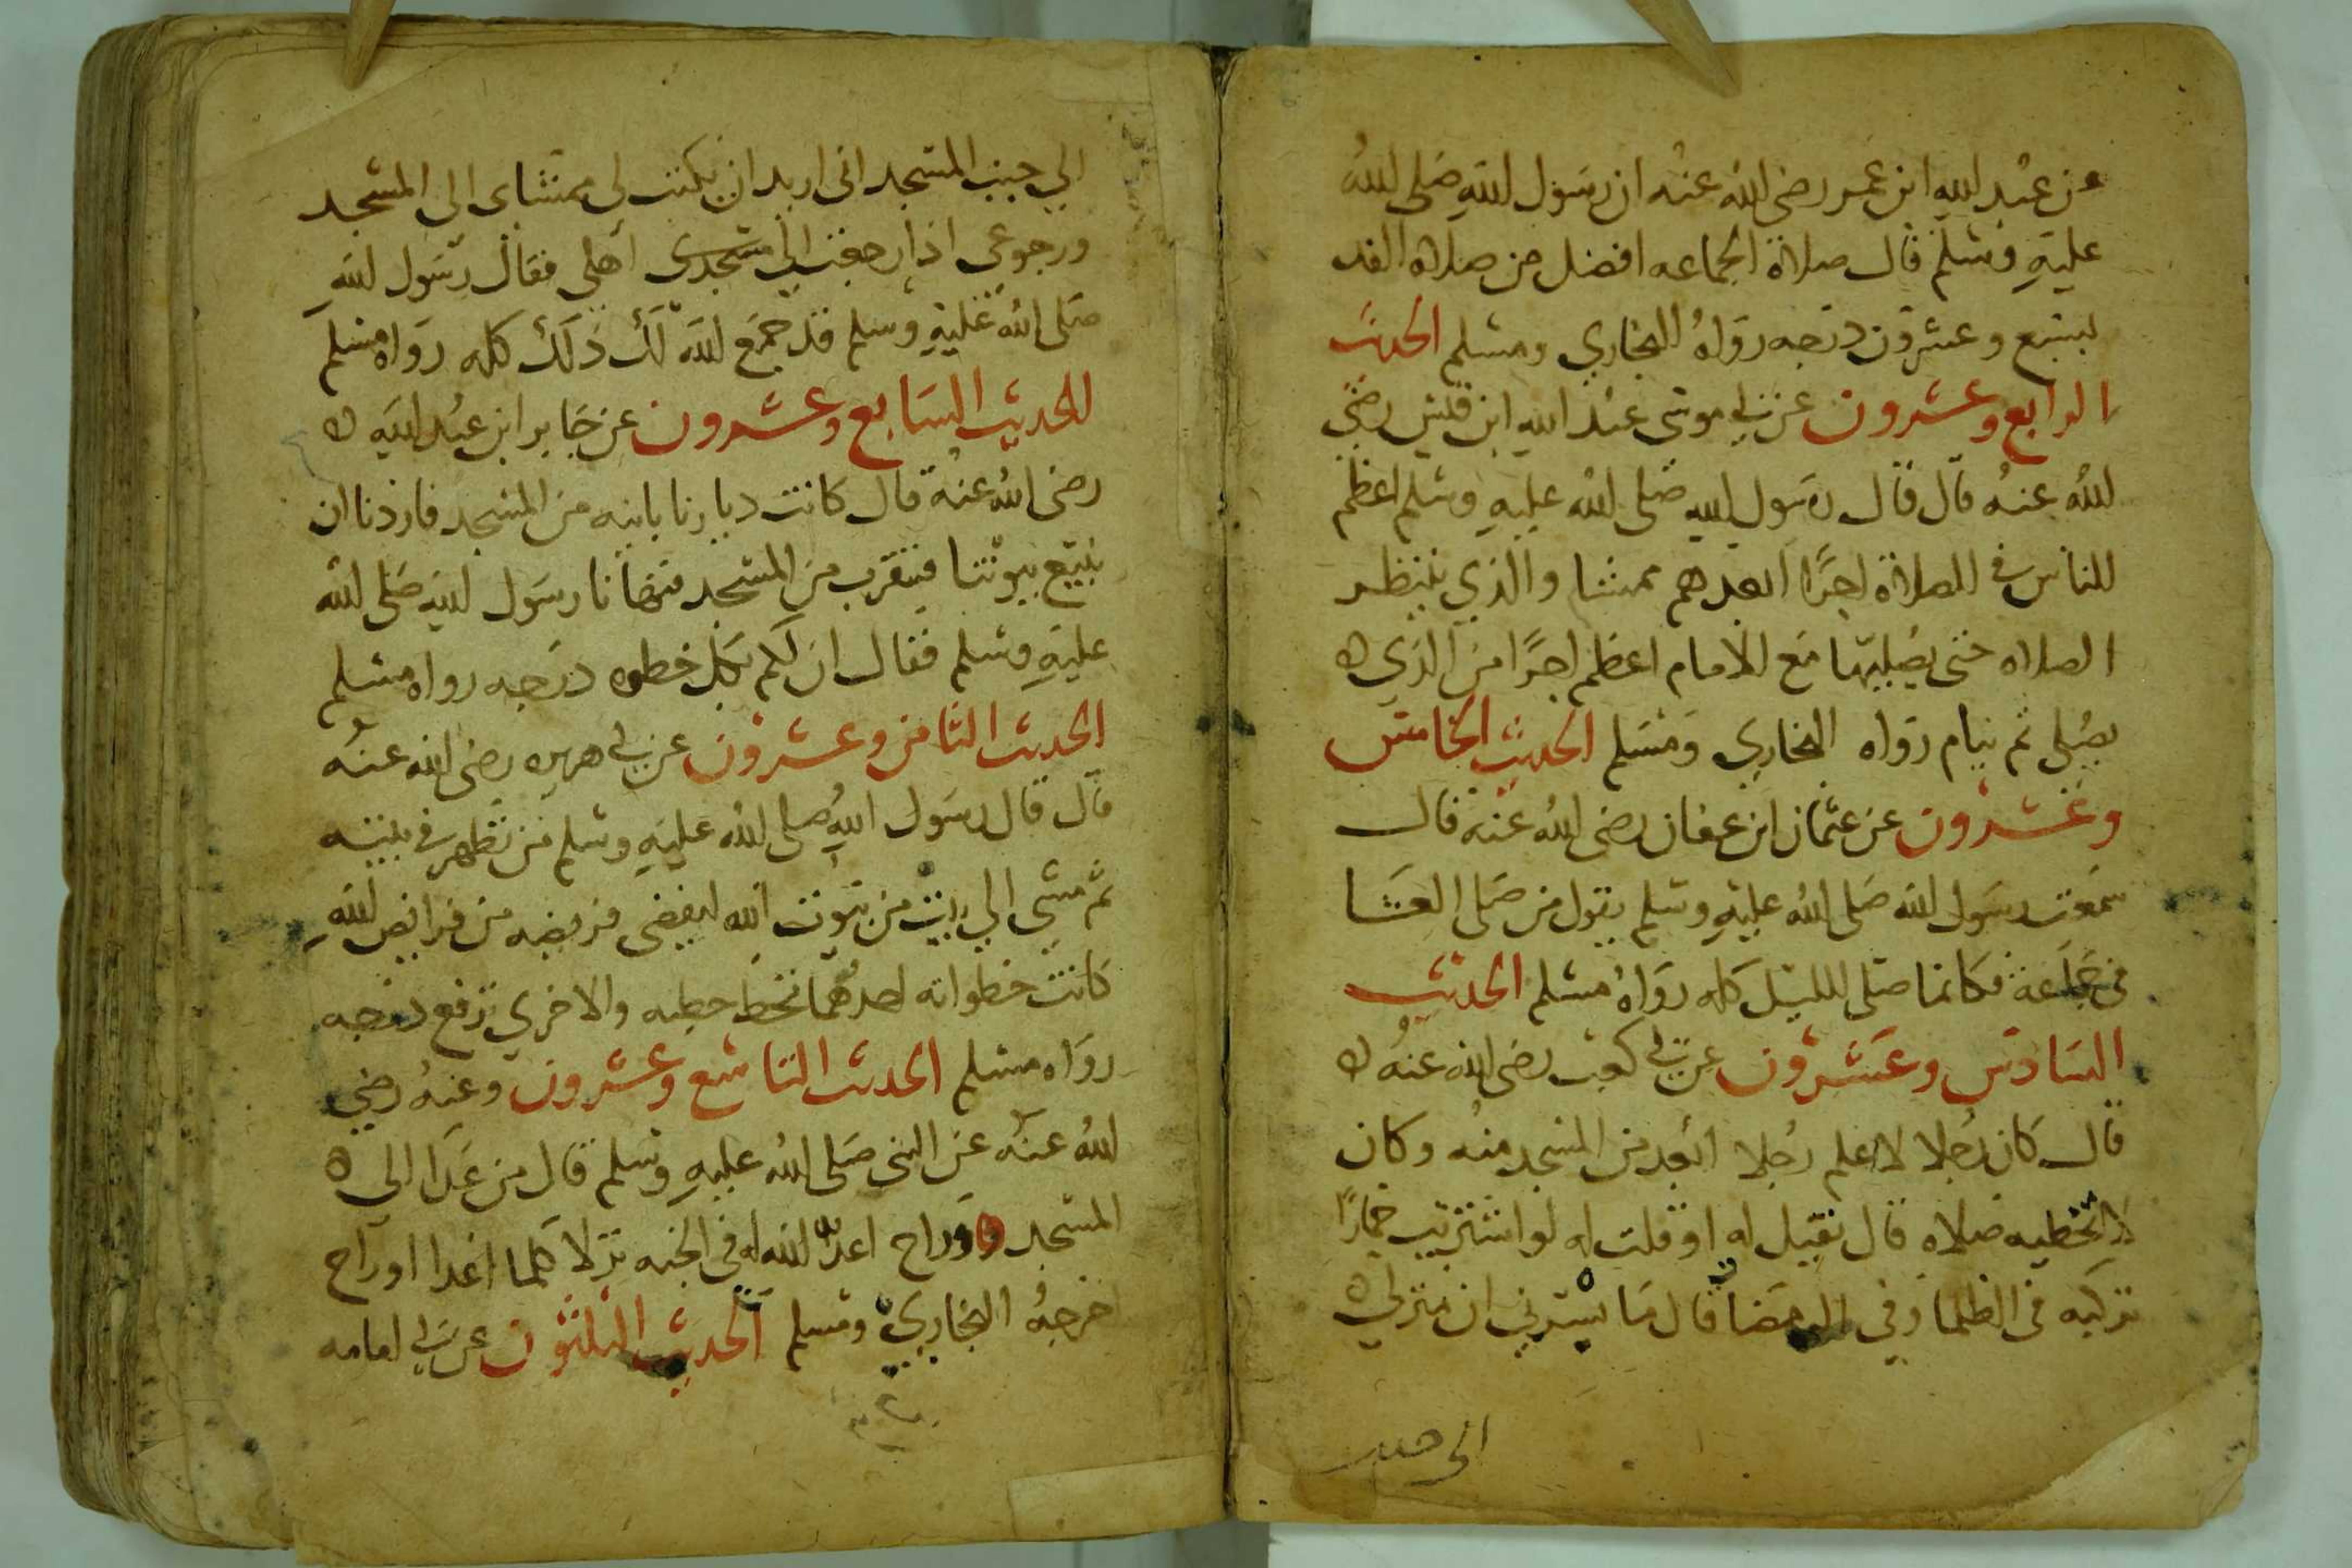 عن عبد الله ابن عمر رضي الله عنه ان رسول الله صلى الله
عليه وسلم قال صلاة الجماعه افضل من صلاه الفد
لسبع وعشرون درجه رواه البخاري ومسلم الحديث
الرابع وعشرون عن ابي موسى عبد الله ابن قيس رضي
الله عنه قال قال رسول الله صلى الله عليه وسلم اعظم
الناس في الصلاة اجرًا ابعدهم ممشا والذي ينتظر
الصلاه حتى يصليها مع الامام اعظم اجرًا من الذي ه
يصلي ثم ينام رواه البخاري ومسلم الحديث الخامس
وعشرون عن عثمان ابن عفان رضي الله عنه قال
سمعت رسول الله صلى الله عليه وسلم يقول من صلى العشا
في جماعة فكانما صلى الليل كله رواه مسلم الحديث
السادس وعشرون عن ابي كعب رضي الله عنه ه
قال كان رجلا لا اعلم رجلا ابعد من المسجد منه وكان
لا تخطيه صلاه قال فقيل له او قلت له لو اشتريت حمارًا
تركبه في الظلما وفي الرمضا قال ما يسرني ان منزلي ه
الى جنب
الي جنب المسجد اني اريد ان يكتب لي ممشاي الى المسجد
ورجوعي اذا رجعت الي مسجدي اهلي فقال رسول الله
صلى الله عليه وسلم قد جمع الله لك ذلك كله رواه مسلم
الحديث السابع وعشرون عن جابر ابن عبد الله ه
رضي الله عنه قال كانت ديارنا باينه من المسجد فاردنا ان
نبتع بيوتنا فنتقرب من المسجد فنهانا رسول الله صلى الله
عليه وسلم فقال ان لكم بكل خطوه درجه رواه مسلم
الحديث الثامن وعشرون عن ابي هريره رضي الله عنه
قال قال رسول الله صلى الله عليه وسلم من تطهر في بيته
ثم مشى الي بيت من بيوت الله ليقضي فريضه من فرايض الله
كانت خطواته احدهما تخط خطيه والاخري ترفع درجه
رواه مسلم الحديث التاسع وعشرون وعنه رضي
الله عنه عن النبي صلى الله عليه وسلم قال من غدا الي ه
المسجد وراح اعد الله له في الجنه نزلا كلما اغدا او راح
اخرجه البخاري ومسلم الحديث الثلثون عن ابي امامه